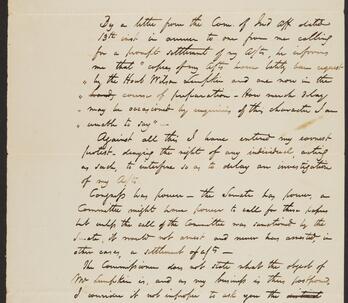 By a letter from the Com. of Ind Aff. dated
13th inst in answer to one from me calling
for a prompt settlement of my a/cts, he informs
me that "copies of my a/cts have lately been request
" by the Hon. Wilson Lumpkin and are now in the
" course of preparation - How much delay
" may be occasioned by enquiries of this character I am
" unable to say" -
Against all this I have entered my earnest
protest - denying the right of any individual acting
as such, to interfere so as to delay an investigation
of my a/cts
Congress has power - the Senate has power, a
Committee might have power to call for these papers
but unless the call of the Committee was sanctioned by the
Senate, it would not arrest and never has arrested, in
other cases, a settlement of a/cts -
The Commissioner does not state what the object of
Mr Lumpkin is, and as my business is thus postponed,
I consider it not improper to ask you the